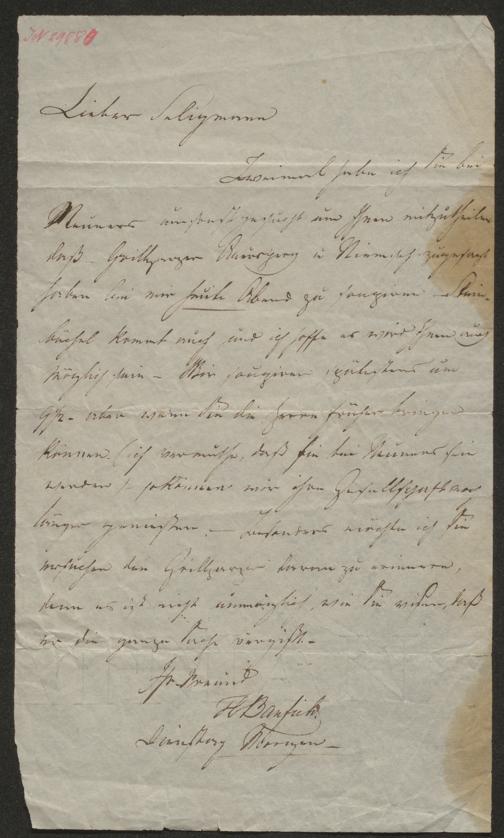 Lieber Seligmann
Zweimal habe ich Sie bei
Neuners umsonst gesucht um Ihnen mitzutheilen
daß Grillparzer Auersperg u Niembsch zugesagt
haben bei mir heute Abend zu soupiren Stein-
büchel kommt auch und ich hoffe es wird Ihnen auch
möglich sein – Wir soupiren spätestens um
9½ – aber wenn Sie die Herrn früher bringen
können (ich vermuthe, daß sie bei Neuners sein
werden) so können wir ihre Gesellschaft
länger genießen. – Besonders möchte ich Sie
ersuchen den Grillparzer daran zu erinnern,
denn es ist nicht unmöglich, wie Sie wissen, daß
er die ganze Sache vergißt –
Ihr Freund
Dienstag Morgen –